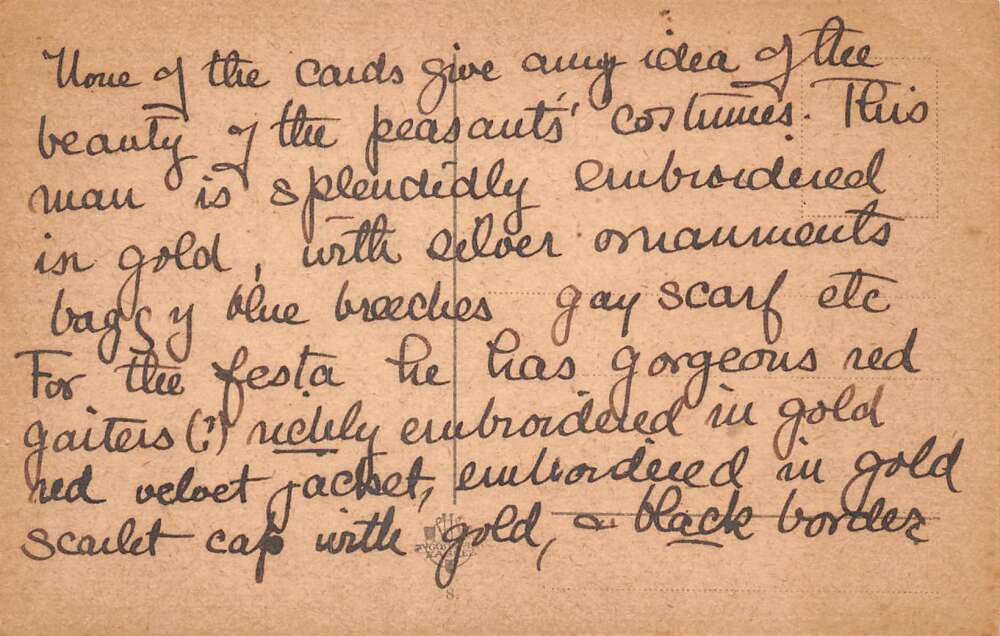 None of the cards give any idea of the
beauty of the peasants' costumes. This
man is splendidly embroidered
in gold, with silver ornaments
baggy blue breeches gay scarf etc
For the festa he has gorgeous red
gaiters (?) richly embroidered in gold
red velvet jacket, embroidered in gold
scarlet cap with gold, & black border
8.